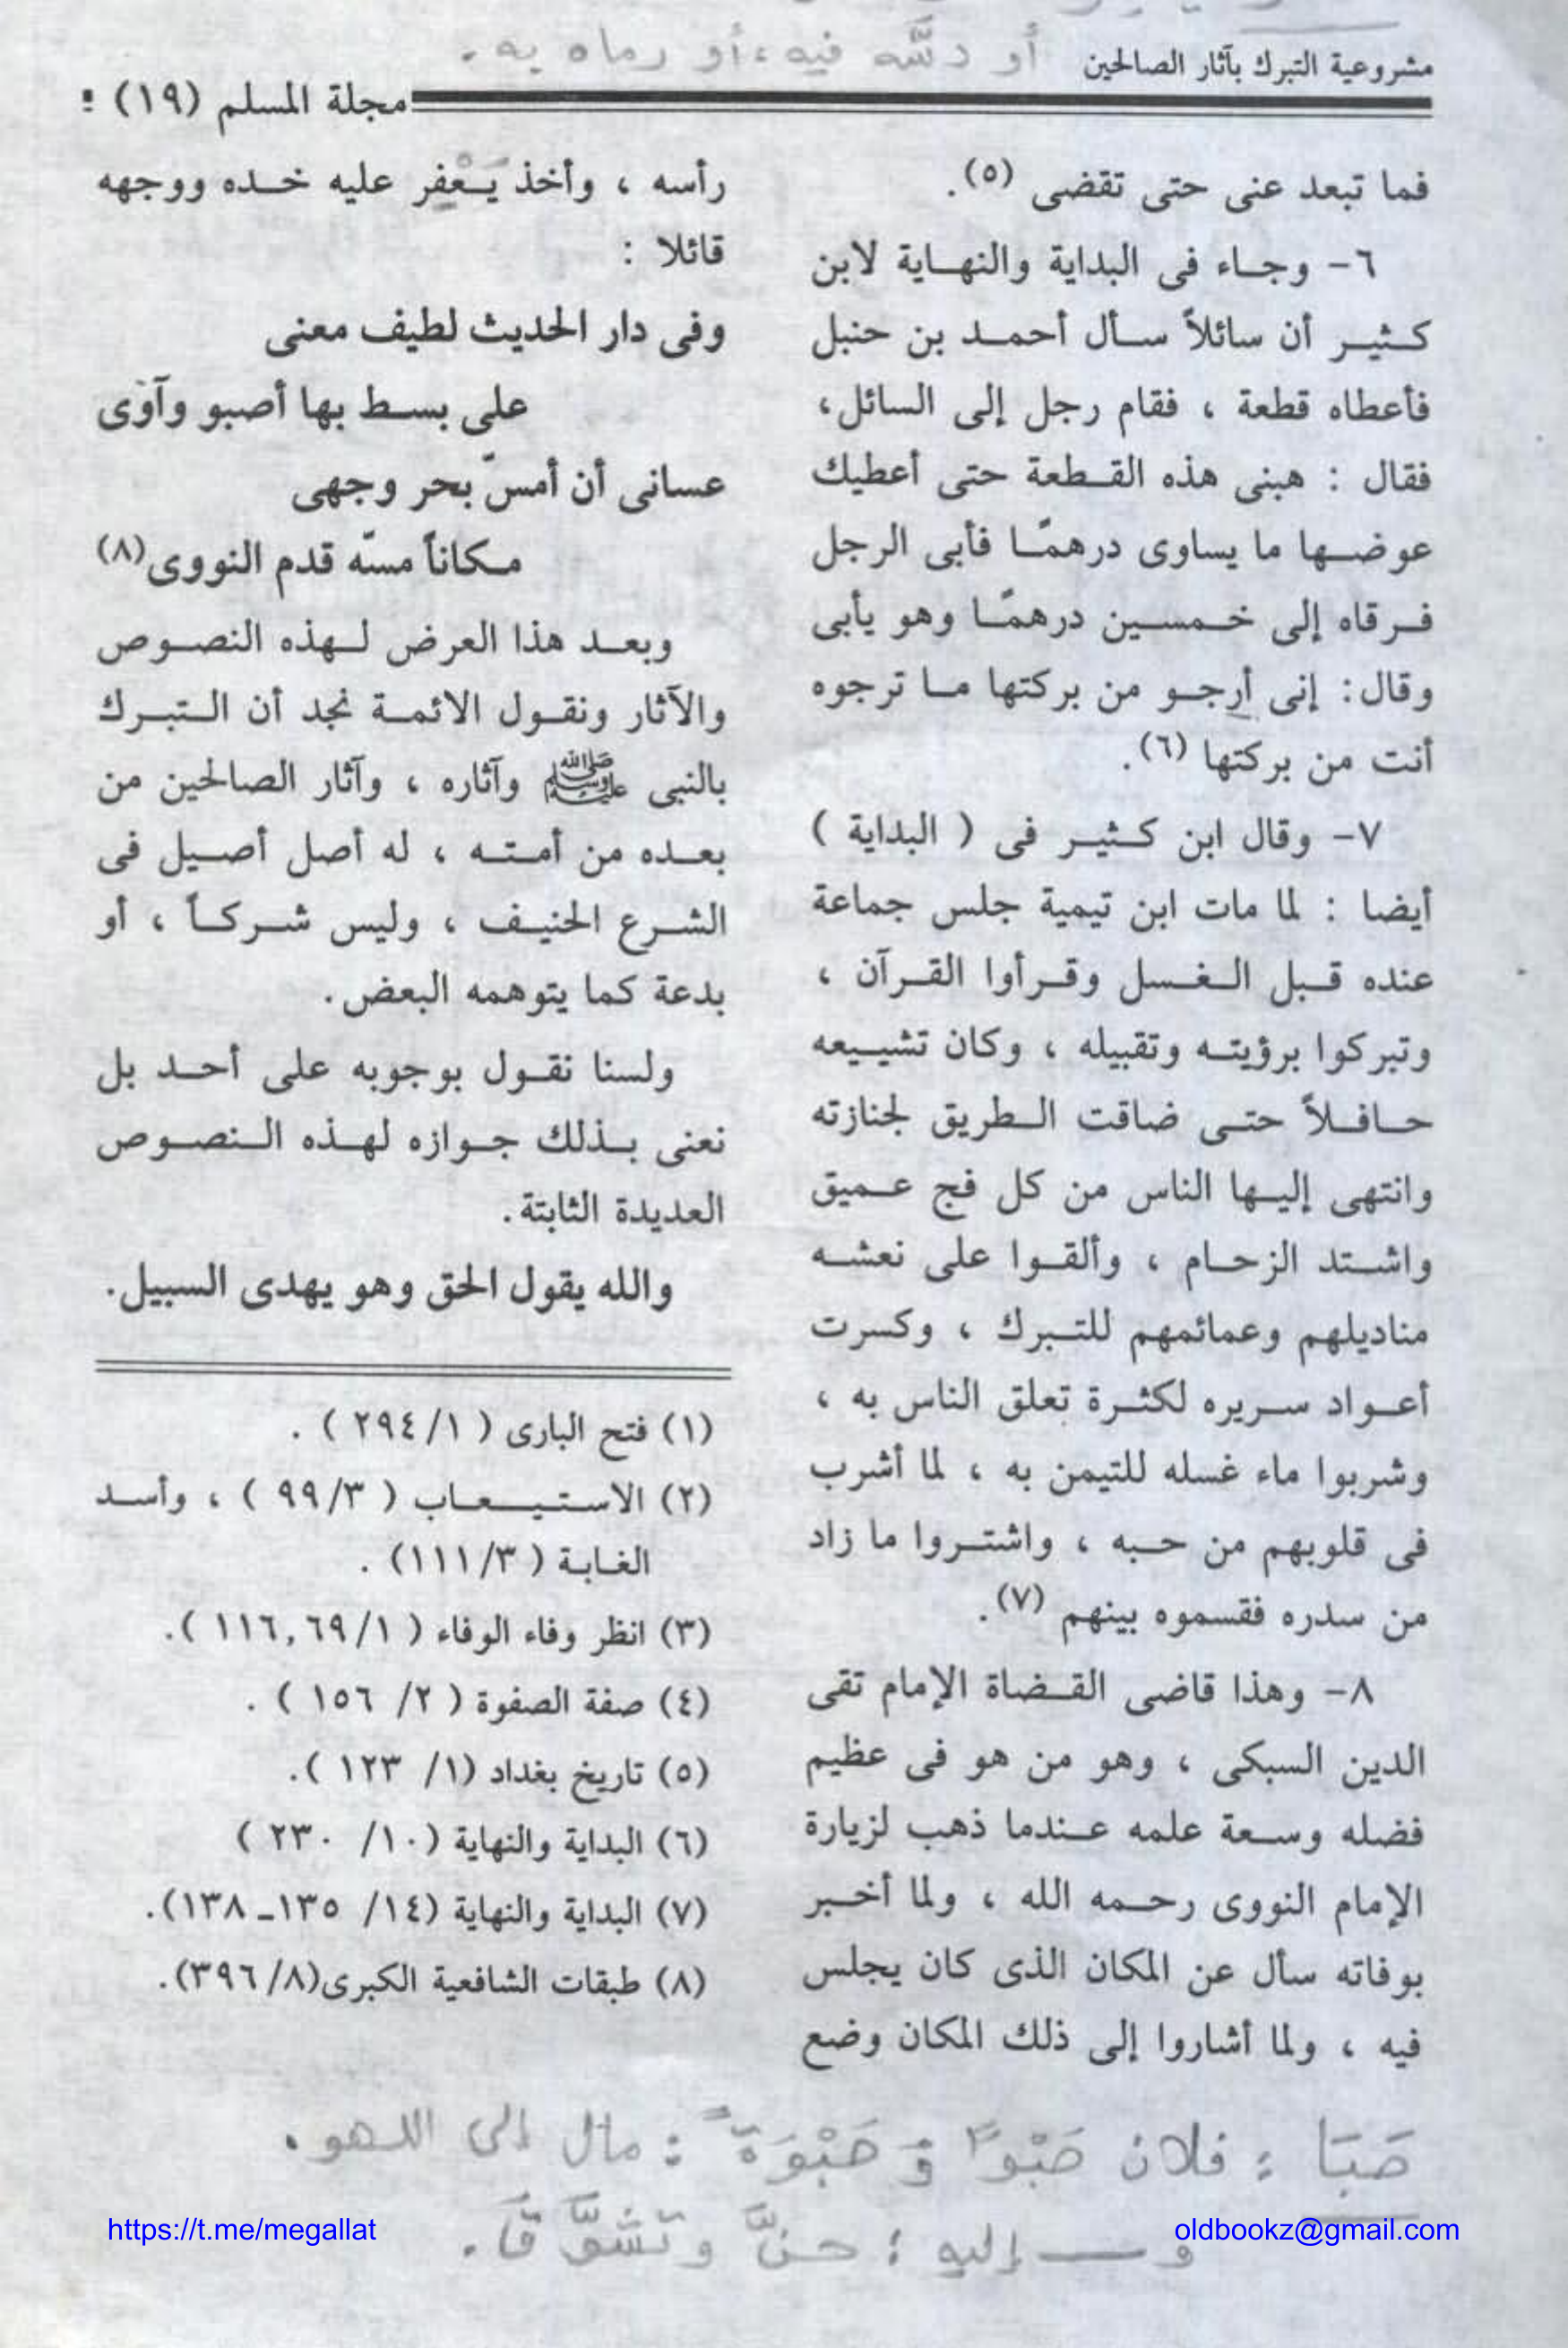 أو دسَّه فيه، أو رماه به.
مشروعية التبرك بآثار الصالحين
مجلة المسلم (١٩)
فما تبعد عنى حتى تقضى (٥).
٦- وجاء فى البداية والنهاية لابن
كثير أن سائلاً سأل أحمد بن حنبل
فأعطاه قطعة ، فقام رجل إلى السائل،
فقال : هبنى هذه القطعة حتى أعطيك
عوضها ما يساوى درهمًا فأبى الرجل
فرقاه إلى خمسين درهمًا وهو يأبى
وقال: إنى أرجو من بركتها ما ترجوه
أنت من بركتها (٦).
٧- وقال ابن كثير فى ( البداية )
أيضا : لما مات ابن تيمية جلس جماعة
عنده قبل الغسل وقرأوا القرآن ،
وتبركوا برؤيته وتقبيله ، وكان تشييعه
حافلاً حتى ضاقت الطريق لجنازته
وانتهى إليها الناس من كل فج عميق
واشتد الزحام ، وألقوا على نعشه
مناديلهم وعمائمهم للتبرك ، وكسرت
أعواد سريره لكثرة تعلق الناس به ،
وشربوا ماء غسله للتيمن به ، لما أشرب
فى قلوبهم من حبه ، واشتروا ما زاد
من سدره فقسموه بينهم (٧).
٨- وهذا قاضى القضاة الإمام تقى
الدين السبكى ، وهو من هو فى عظيم
فضله وسعة علمه عندما ذهب لزيارة
الإمام النووى رحمه الله ، ولما أخبر
بوفاته سأل عن المكان الذى كان يجلس
فيه ، ولما أشاروا إلى ذلك المكان وضع
رأسه ، وأخذ يَعْفِر عليه خده ووجهه
قائلا :
وفى دار الحديث لطيف معنى
على بسط بها أصبو وآوى
عسانى أن أمسّ بحر وجهى
مكاناً مسّه قدم النووى(٨)
وبعد هذا العرض لهذه النصوص
والآثار ونقول الائمة نجد أن التبرك
بالنبى ﷺ وآثاره ، وآثار الصالحين من
بعده من أمته ، له أصل أصيل فى
الشرع الحنيف ، وليس شركاً ، أو
بدعة كما يتوهمه البعض.
ولسنا نقول بوجوبه على أحد بل
نعنى بذلك جوازه لهذه النصوص
العديدة الثابتة.
والله يقول الحق وهو يهدى السبيل.
(١) فتح البارى ( ١/ ٢٩٤ ) .
(٢) الاستيعاب ( ٣/ ٩٩ ) ، وأسد
الغابة ( ٣/ ١١١) .
(٣) انظر وفاء الوفاء ( ١/ ٦٩, ١١٦ ).
(٤) صفة الصفوة ( ٢/ ١٥٦ ) .
(٥) تاريخ بغداد (١/ ١٢٣ ).
(٦) البداية والنهاية (١٠/ ٢٣٠ )
(٧) البداية والنهاية (١٤/ ١٣٥ـ ١٣٨).
(٨) طبقات الشافعية الكبرى(٨/ ٣٩٦).
صَبَا : فلان صَبْواً وَ صَبْوَةً : مال إلى اللهو.
و ـــ إليه : حنَّ وتَشَوَّقَ.
https://t.me/megallat
oldbookz@gmail.com